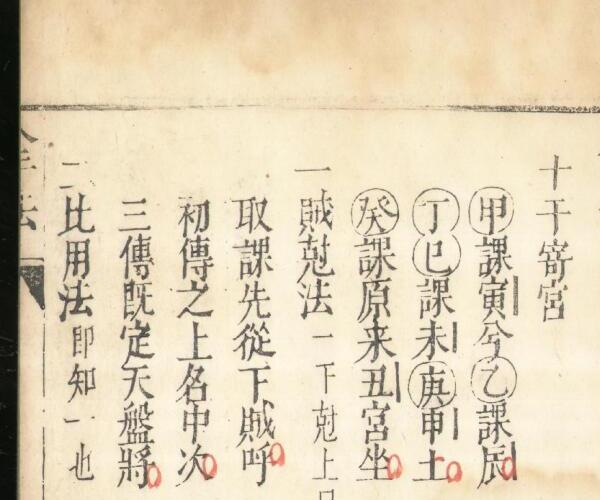 十干寄宮
甲課寅兮乙課辰
丁巳課未庚申上
癸課原来丑宮坐
一賊尅法一下尅上
取課先從下賊呼
初傳之上名中次
三傳既定天盤將
二比用法即知一也
全法